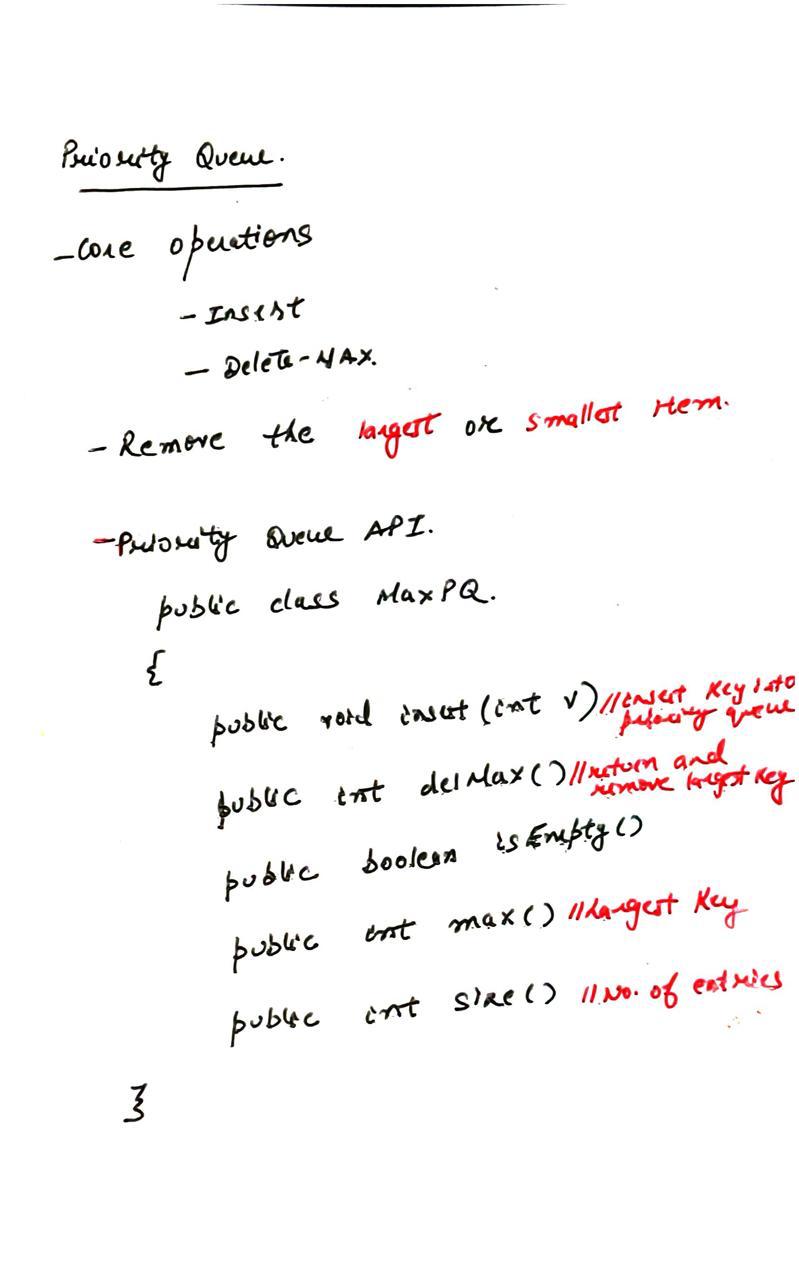 Priority Queue.
- Core operations
- Insert
- Delete-MAX.
- Remove the largest or smallest item.
- Priority Queue API.
public class MaxPQ.
{
public void insert (int v) //insert key into
priority queue
public int delMax() //return and
remove largest key
public boolean isEmpty()
public int max() //largest key
public int size() //No. of entries
}